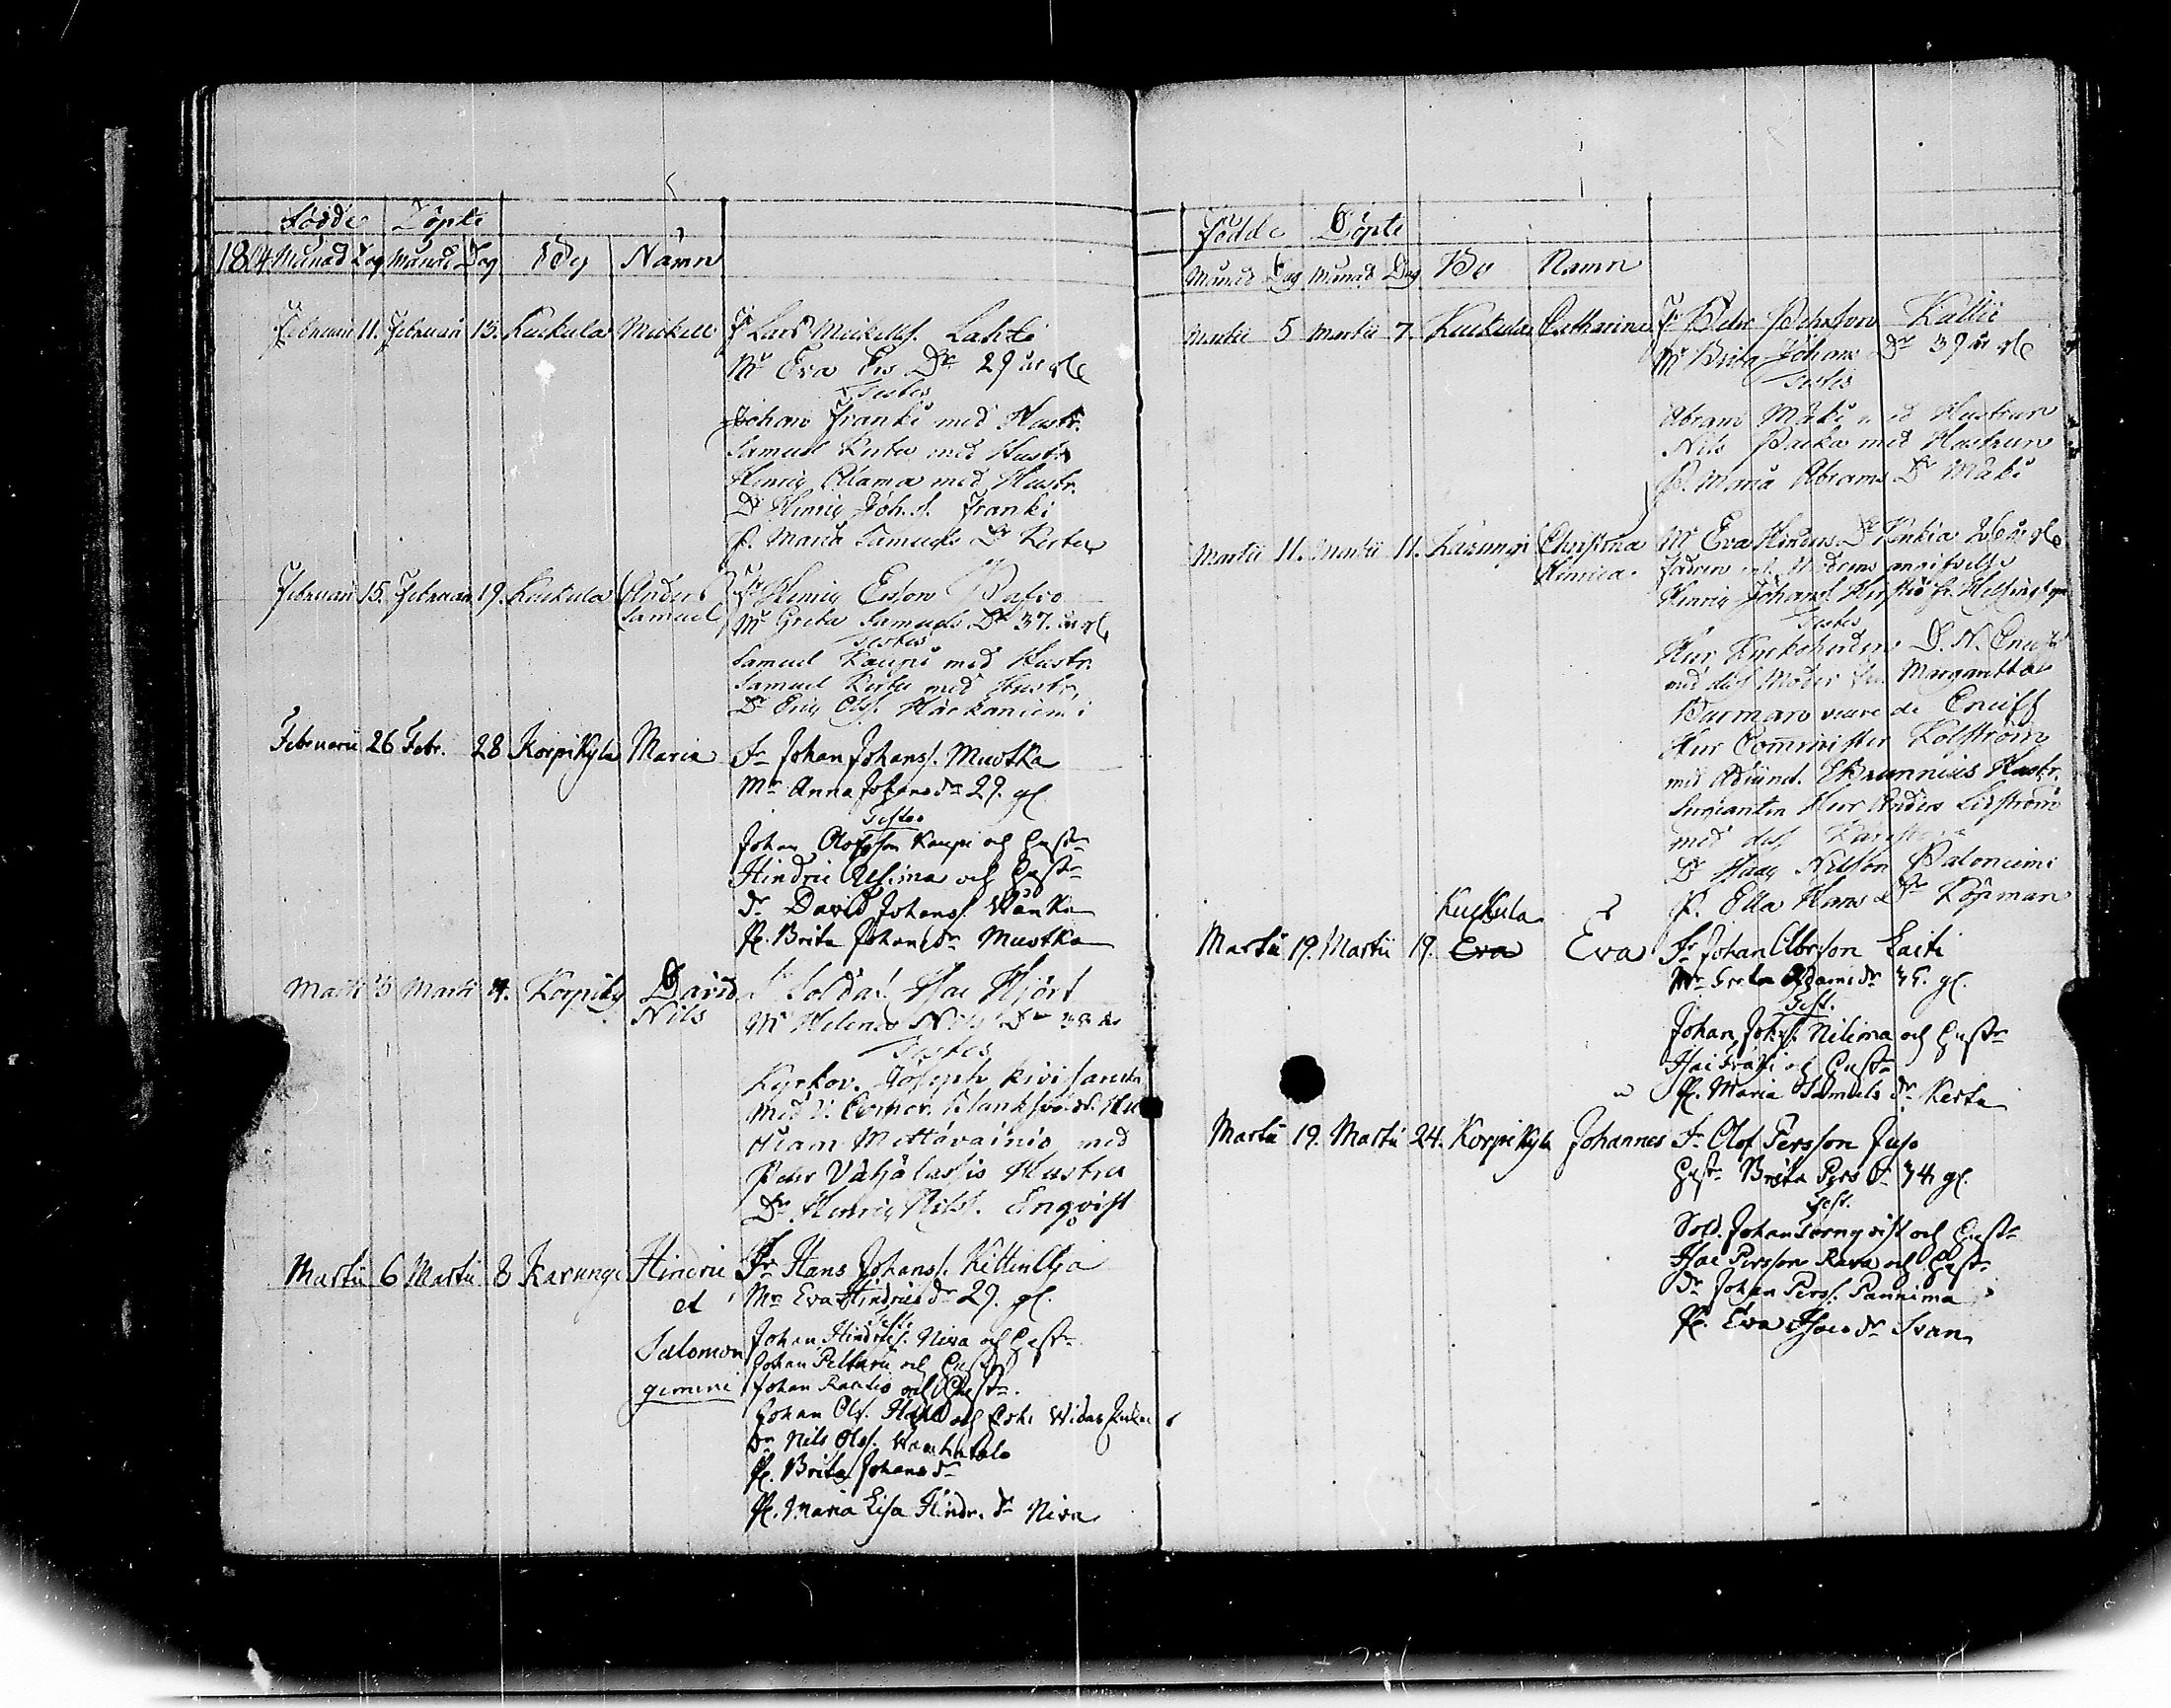 Födde Döpte
1804 Månad Dag Månad Dag By Namn
Februarii 11. Februarii 13. Kuckula Mickell Fr Lars Mickelss. Lahti
Mr Eva Ers Dr 29 år gl.
Testes
Johan Franki med Hustr.
Samuel Kerttu med Hustr.
Henrig Alama med Hustr.
Dr Henrig Joh.s. Franki
P. Maria Samuels Dr Kerttu
Februarii 15. Februarii 19. Kuckula Anders Fr Henrig Ersson
Samuel Mr Greta Samuels Dr 37. år gl.
Testes
Samuel Kaupi med Hustr.
Samuel Kerttu med Hustr.
Dr Erig Olss. Härkäniemi
Februarii 26 Febr. 28 Korpikyla Maria Fr Johan Johanss. Muotka
Mr Anna Johans dr 29. gl.
Testes
Johan Olofsson Kaupi och Hustr
Hindric Alsima och Hustr
dr David Johanss. Wänkä
P. Brita Johans dr Muotka
Martii 3 Martii 4. Korpiky David Fr Soldat. Isac Hjort
Nils Mr Helena Nils Dr 38 år
Testes
Kyrkov. Joseph Kivisanda
Adam Mettävainio med
Peder Vähälässis Hustru
Dr Henrig Nilss. Enqvist
Martii 6 Martii 8 Karungi Hindric Fr Hans Johanss. Kittin Oja
et Mr Eva Hindrics dr 29. gl.
Teste
Salomon Johan Hindricss. Niva och Hustr
Johan Peltari och Hustr
gemini Johan Rantio och Hustr.
Johan Ols.
dr Nils Olss.
P. Brita Johans dr
P. Maria Lisa Hindr. dr Niva
Födde Döpte
Månad Dag Månad Dag By Namn
Martii 5 Martii 7. Kuckula Catharina Fr Pehr Pehrsson Kallio
Mr Brita Johans Dr 39 år gl.
Testes
Abram Mäki med Hustrun
Nils Packa med Hustrun
P. Maria Abrams Dr Mäki
Martii 11. Martii 11. Karungi Christina Mr Eva Hindrics Dr 26 år gl.
Henrica Fadren enl. Modrens angifvelse
Henrig Johanss.
Testes
med dess Moder Fru Margaretta
Burman
Herr Comminister Kolström
med Adjunct. Brunnius Hustr.
Sergeanten Herr Anders Lidström
med dess
Dr Isaac Nilsson Paloniemi
P. Ella Hans Dr Köpman
Kuckula
Martii 19. Martii 19. Eva Eva Fr Johan Abrsson Laiti
Mr Greta Adams dr 35. gl.
Test.
Johan Johss. Nilima och Hustr
Isac Fräki och Hustr
P. Maria Samuels dr Kerta
Martii 19. Martii 24. Korpikyla Johannes Fr Olof Persson Juso
Hustr Brita Pers dr 34 gl.
Test.
Sold. Johan Törnqvist och Hustr
Isac Persson Rava och Hustr
dr Johan Perss. Pannima
P. Eva Isacs dr Svan